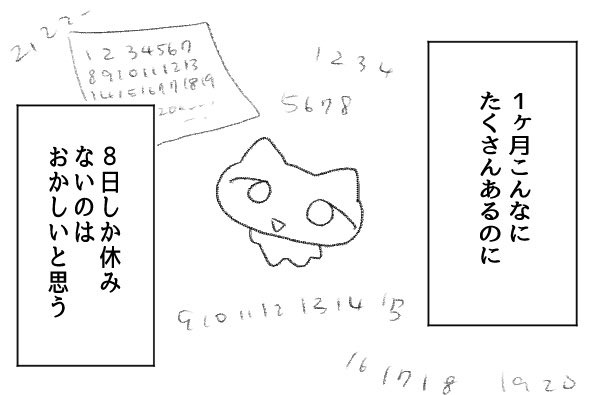 1ヶ月こんなに
たくさんあるのに
21 22
1 2 3 4 5 6 7
8 9 10 11 12 13
14 15 16 17 18 19
20
1 2 3 4
5 6 7 8
8日しか休み
ないのは
おかしいと思う
9 10 11 12 13 14 15
16 17 18 19 20